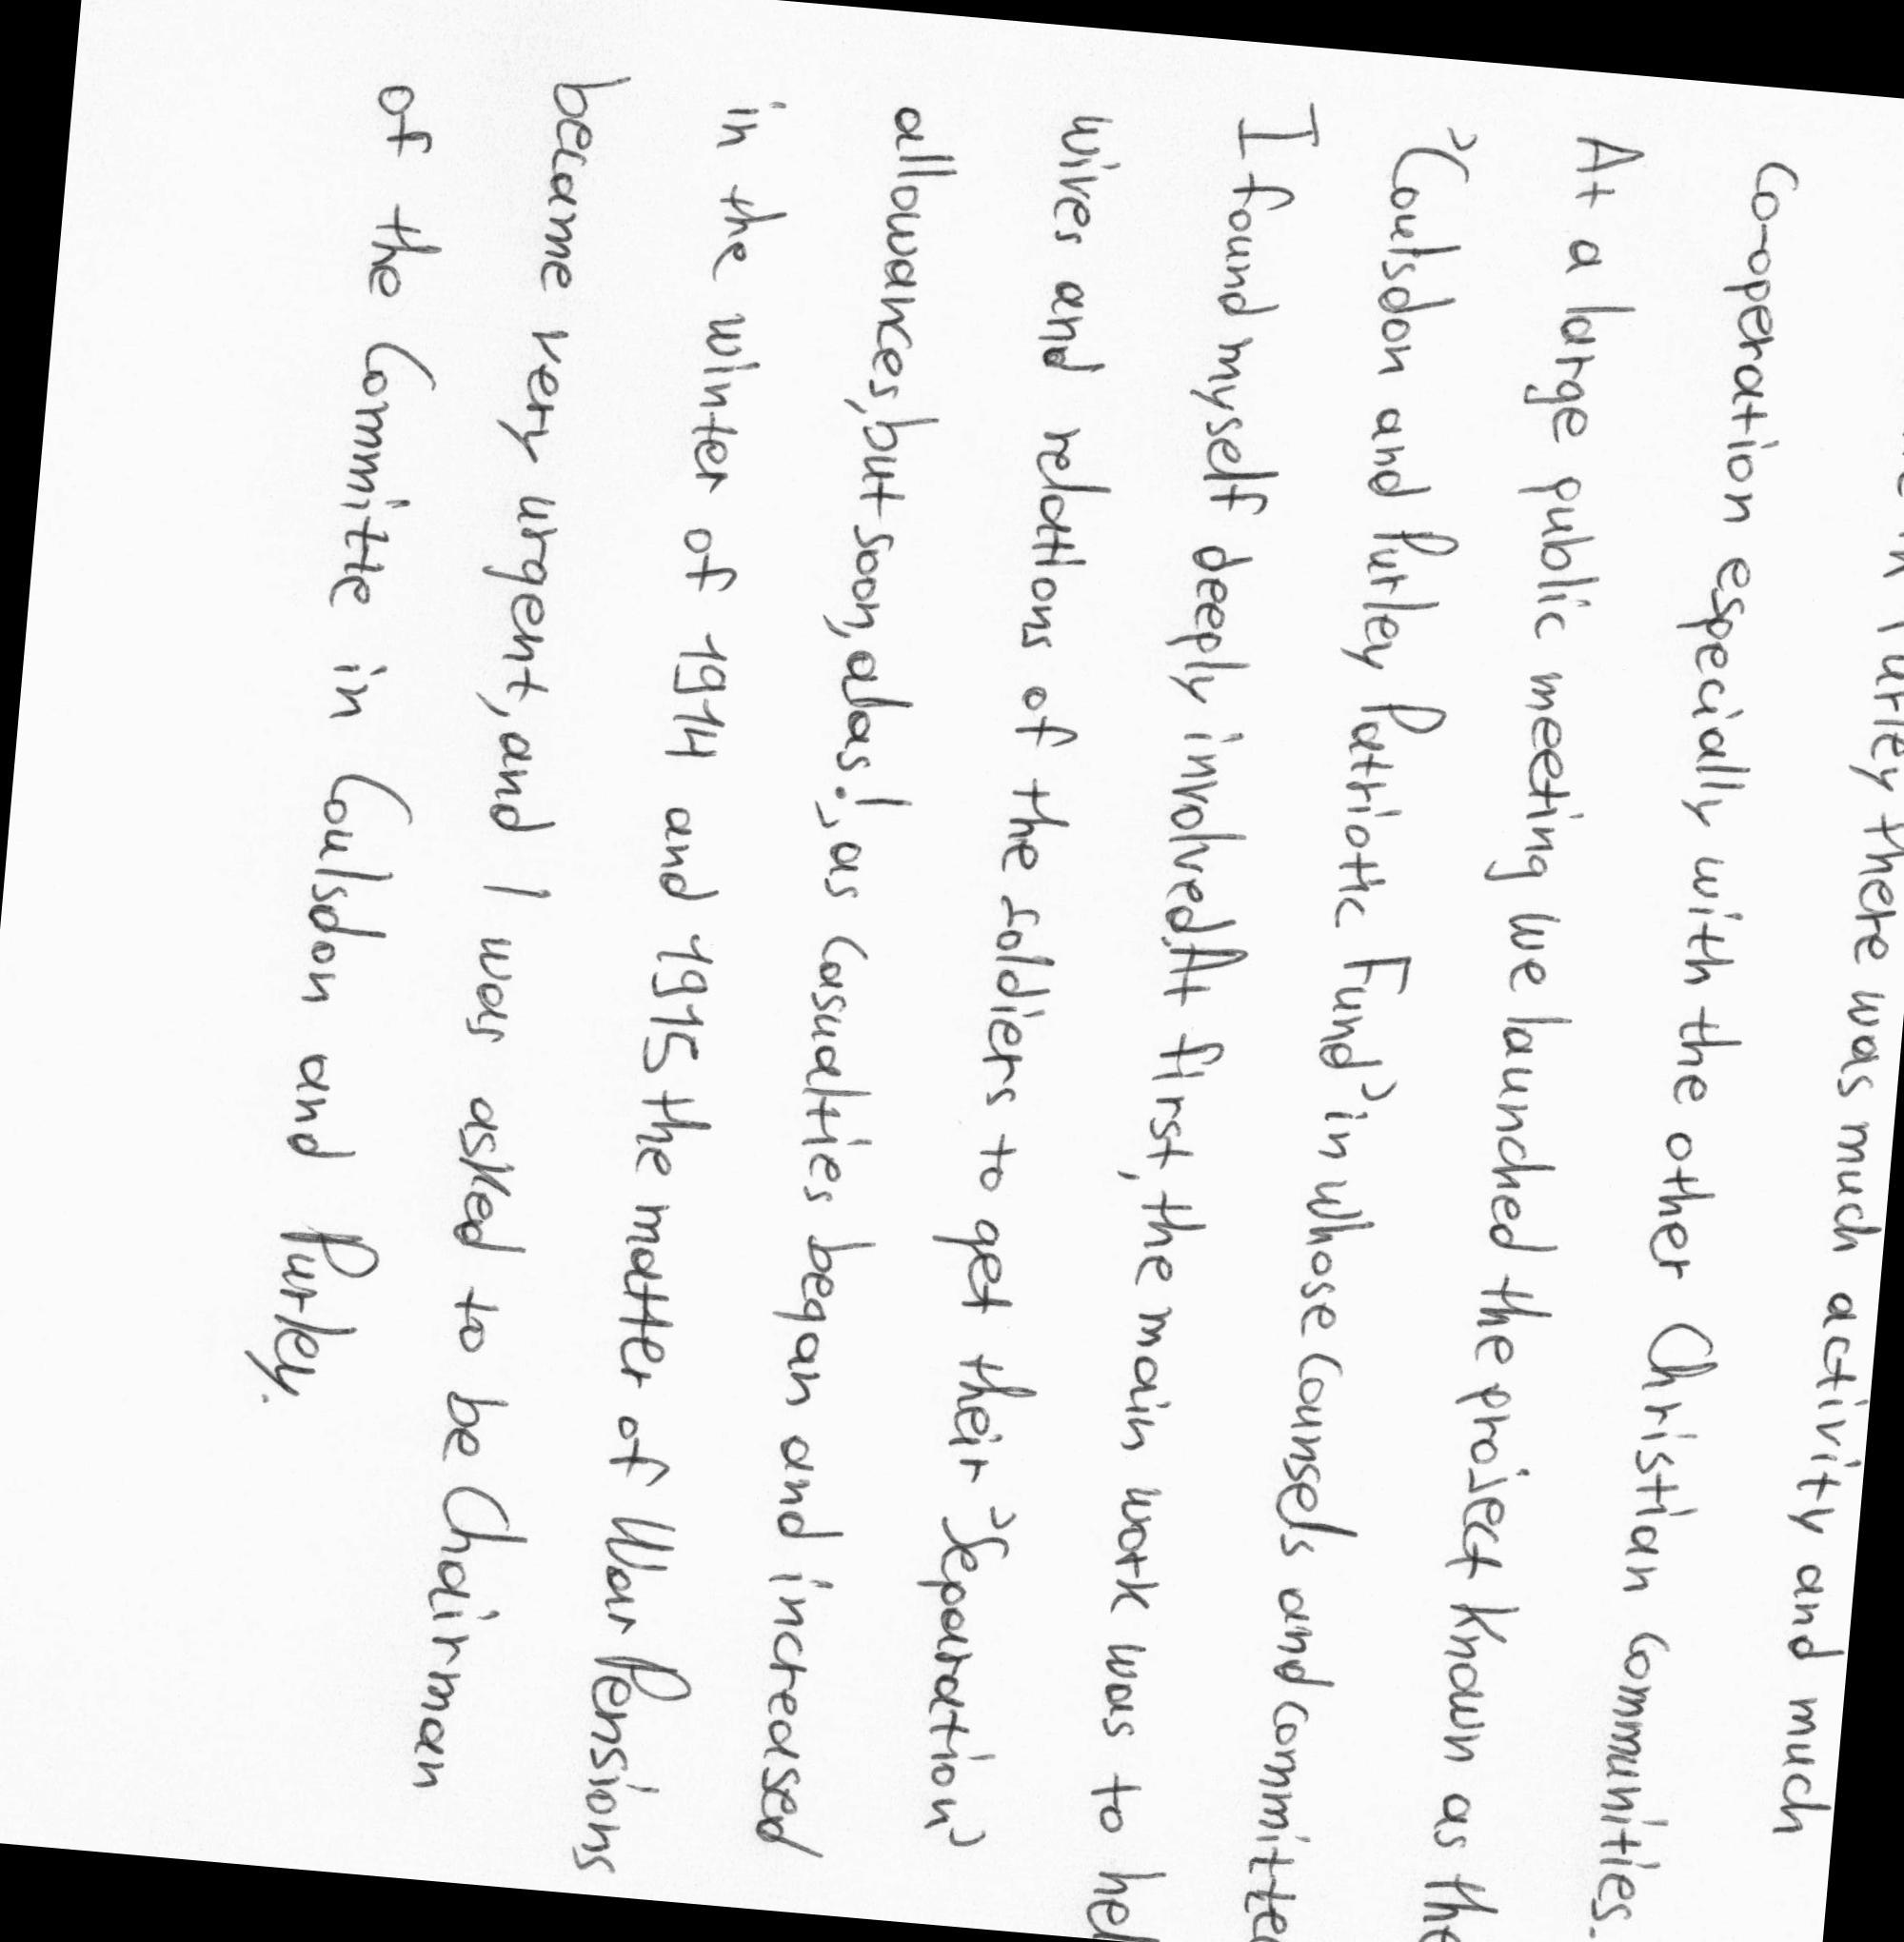 in Purley there was much activity and much
co-operation especially with the other Christian Communities.
At a large public meeting we launched the project known as the
'Coulsdon and Purley Patriotic Fund' in whose Counsels and
I found myself deeply involved. At first, the main work was to
wives and relations of the soldiers to get their 'Separation'
allowances, but soon, alas!, as Casualties began and increased
in the winter of 1914 and 1915 the matter of War Pensions
became very urgent, and I was asked to be Chairman
of the Committe in Coulsdon and Purley.